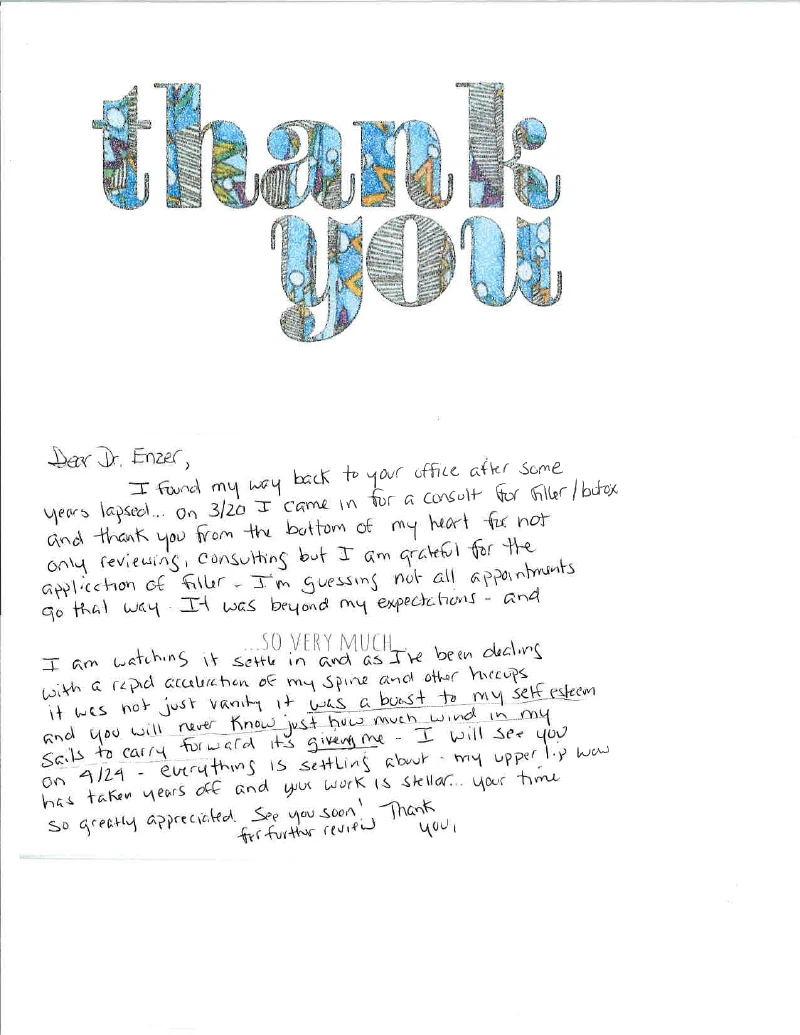 thank
you
Dear Dr. Enzer,
I found my way back to your office after some
years lapsed... on 3/20 I came in for a consult for filler/botox
and thank you from the bottom of my heart for not
only reviewing, consulting but I am grateful for the
application of filler - I'm guessing not all appointments
go that way. It was beyond my expectations - and
...SO VERY MUCH
I am watching it settle in and as I've been dealing
with a rapid acceleration of my spine and other hiccups
it was not just vanity it was a boost to my self esteem
and you will never know just how much wind in my
sails to carry forward its giving me - I will see you
on 4/24 - everything is settling about - my upper lip wow
has taken years off and your work is stellar... your time
so greatly appreciated. See you soon! Thank
for further review you,